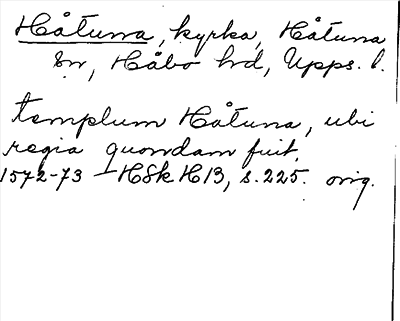 Håtuna, kyrka, Håtuna
sn, Håbo hd, Upps. l.
templum Håtuna, ubi
regia quondam fuit.
1572-73 HSk H13, s. 225. orig.